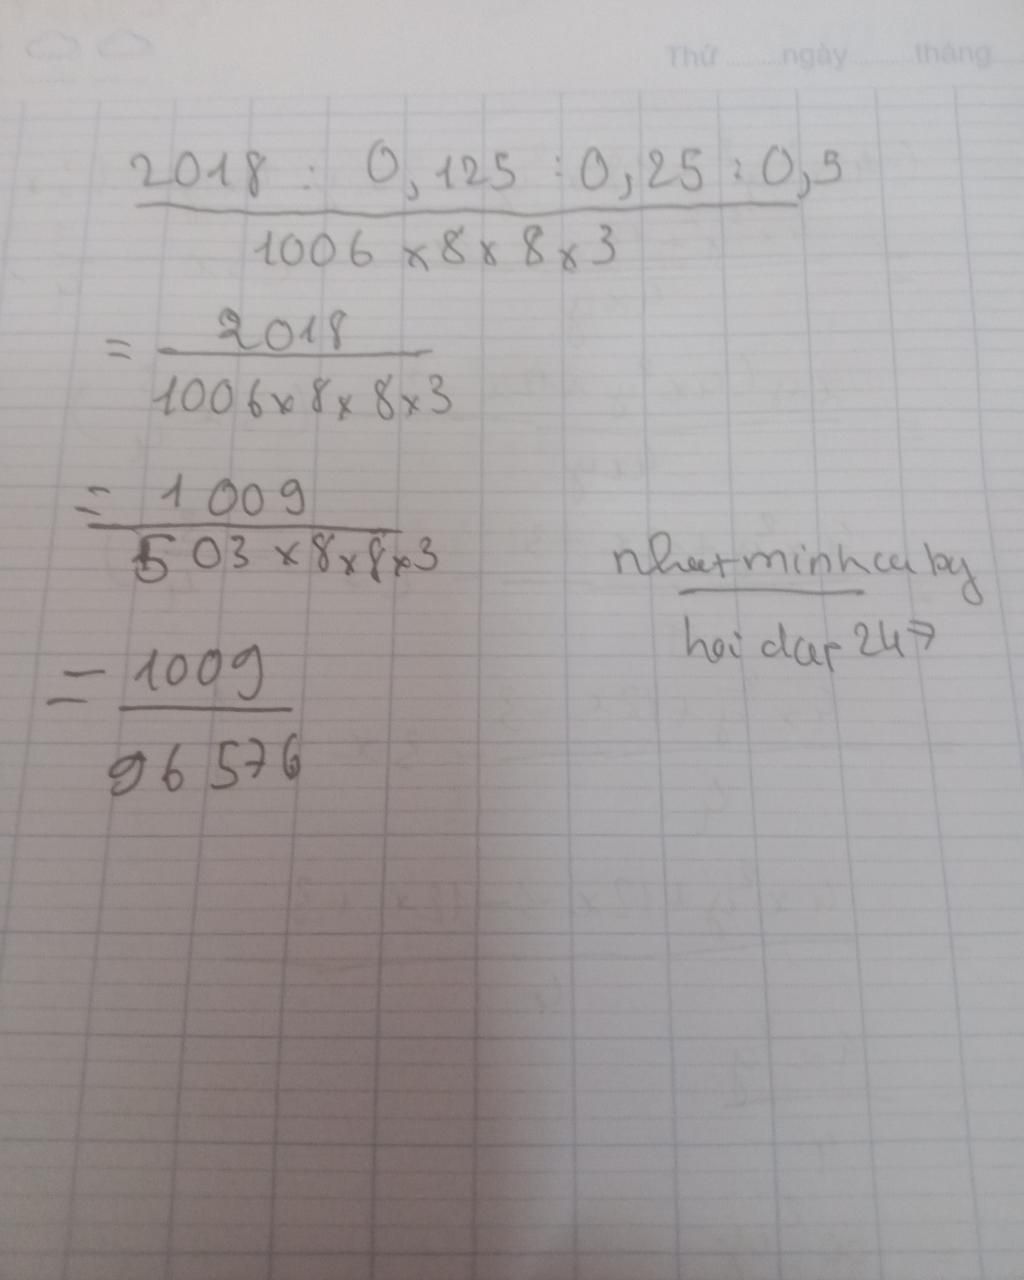 Thứ ........ ngày ........ tháng
2018 : 0,125 : 0,25 : 0,5
1006 x 8 x 8 x 3
= 2018
1006 x 8 x 8 x 3
= 1009
503 x 8 x 8 x 3
= 1009
96 576
nhatminhcaby
hoidap247